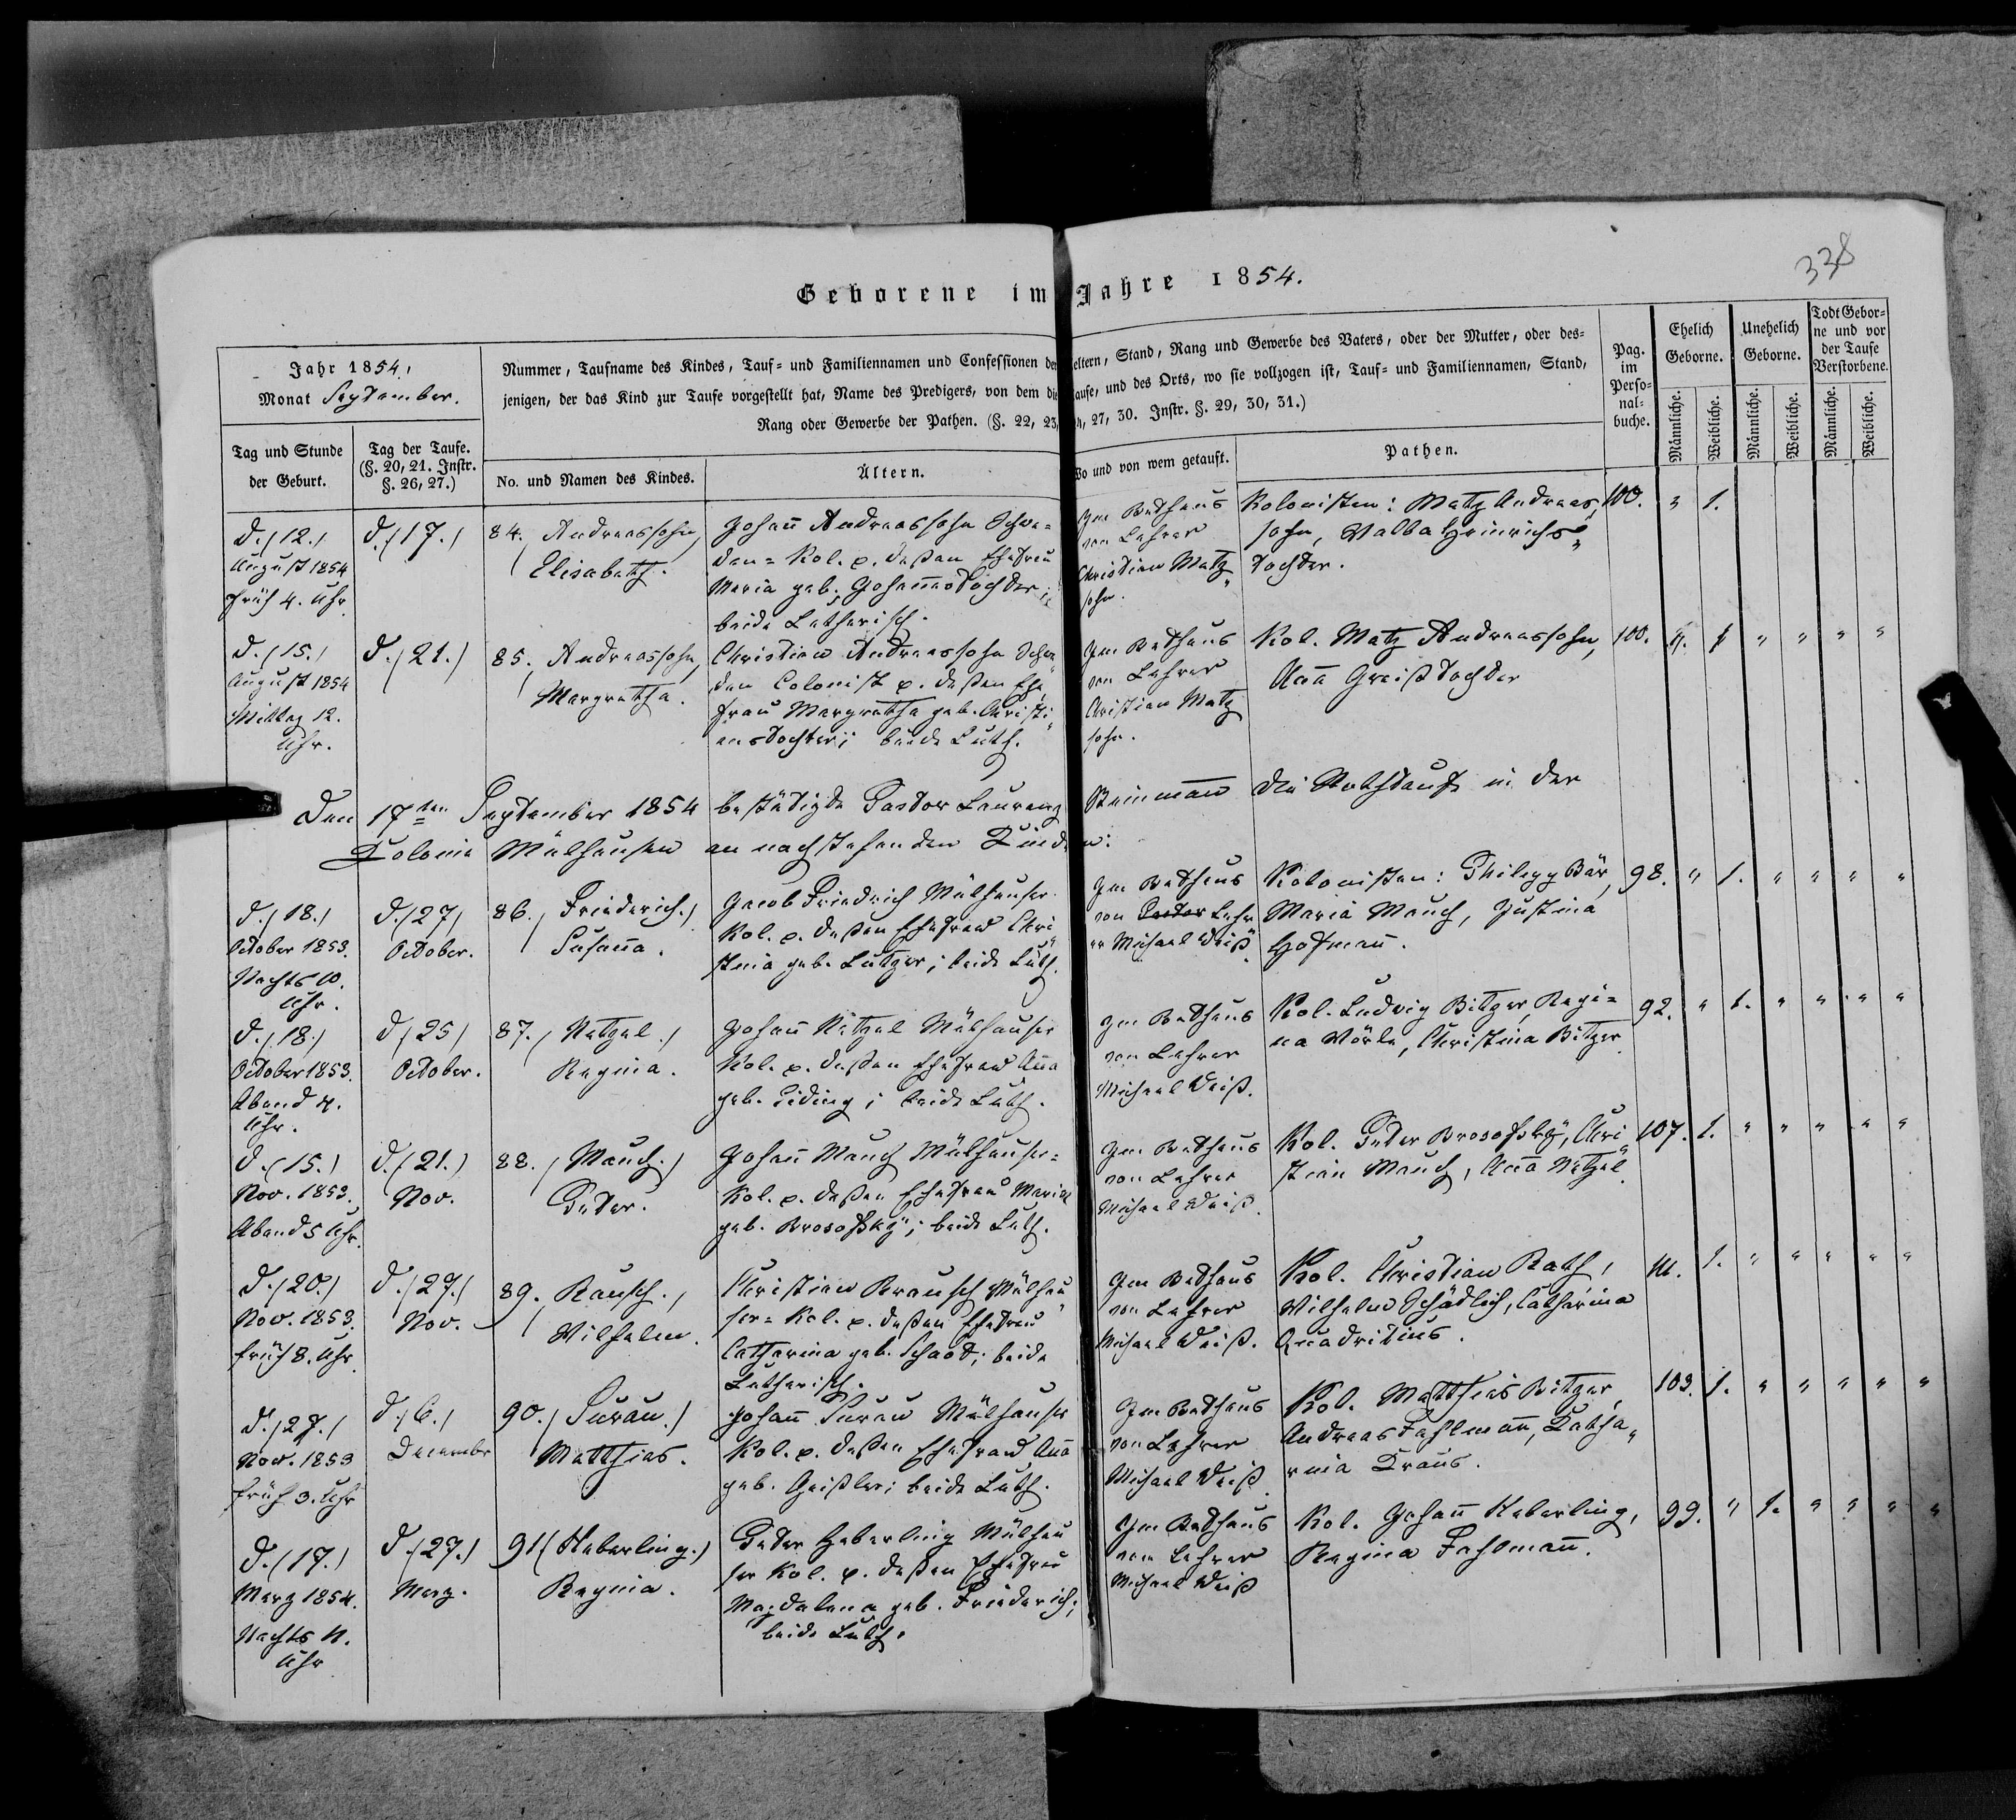 338
Geborene im Jahre 1854.
Jahr 1854,
Monat September.
Tag und Stunde
der Geburt.
Tag der Taufe.
(§. 20, 21. Instr.
§. 26, 27.)
Nummer, Taufname des Kindes, Tauf- und Familiennamen und Confessionen der
jenigen, der das Kind zur Taufe vorgestellt hat, Name des Predigers, von dem die
Rang oder Gewerbe der Pathen. (§. 22, 23,
No. und Namen des Kindes.
Ältern.
eltern, Stand, Rang und Gewerbe des Vaters, oder der Mutter, oder des-
aufe, und des Orts, wo sie vollzogen ist, Tauf- und Familiennamen, Stand,
4, 27, 30. Instr. §. 29, 30, 31.)
Wo und von wem getauft.
Pathen.
Pag.
im
Perso-
nal-
buche.
Ehelich
Geborne.
Unehelich
Geborne.
Todt Gebor-
ne und vor
der Taufe
Verstorbene.
Männliche.
Weibliche.
Männliche.
Weibliche.
Männliche.
Weibliche.
d. (12.)
August 1854
früh 4. Uhr
d. (17.)
84. Andreassohn,
Elisabeth.
Johann Andreassohn Schwe-
den-Kol. u. deßen Ehefrau
Maria geb. Johannestochter;
beide Lutherisch.
Im Bethaus
von Lehrer
Christian Matz
sohn.
Kolonisten: Matz Andreas
sohn, Walba Heinrichs
tochter.
100. " 1.
d. (15.)
August 1854
Mittag 12.
Uhr.
d. (21.)
85. Andreassohn,
Margretha.
Christian Andreassohn Schwe
den Colonist u. deßen Ehe
frau Margretha geb. Christi
anstochter; beide Luth.
Im Bethaus
von Lehrer
Christian Matz
sohn.
Kol. Matz Andreassohn,
Anna Greißtochter
100. " 1 " " " "
Den 17ten September 1854 bestätigte Pastor Laurenz Steinmann die Nothtaufe in der
Kolonie Mülhausen an nachstehenden Kindern:
d. (18.)
October 1853.
Nachts 10.
Uhr.
d. (27)
October.
86. Friederich.)
Susanna.
Jacob Friedrich Mülhauser
Kol. u. deßen Ehefrau Chri
stina geb. Lutzer; beide Luth.
Im Bethaus
von Lehr
er Michael Weiß.
Kolonisten: Philipp Bär,
Maria Mauch, Justina
Hofmann.
98. " 1. " " " "
d. (18.)
October 1853.
Abend 4.
Uhr.
d. (25)
October.
87. (Netzel.)
Regina.
Johann Netzel Mülhauser
Kol. u. deßen Ehefrau Anna
geb. ; beide Luth.
Im Bethaus
von Lehrer
Michael Weiß.
Kol. Ludwig Bitzer, Regi-
na Wörle, Christina Bitzer
92. " 1. " " " "
d. (15.)
Nov. 1853.
Abend 5 Uhr.
d. (21.)
Nov.
88. (Mauch.)
Peter.
Johann Mauch Mülhauser-
Kol. u. deßen Ehefrau Maria
geb. Brosofsky; beide Luth.
Im Bethaus
von Lehrer
Michael Weiß.
Kol. Peter Brosofsky, Chri
stian Mauch, Anna Netzel
107. 1. " " " " "
d. (20.)
Nov. 1853.
früh 8. Uhr
d. (27.)
Nov.
89. Rausch.,
Wilhelm.
Christian Rausch Mülhau
ser-Kol. u. deßen Ehefrau
Catharina geb. Schaad; beide
Lutherisch.
Im Bethaus
von Lehrer
Michael Weiß.
Kol. Christian Rath,
Wilhelm Schädlich, Catharina
Quadritius.
1. " " " " "
d. (27.)
Nov. 1853
früh 3. Uhr
d. (6.)
December
90. (Surau.)
Matthias.
Johann Surau Mülhauser
Kol. u. deßen Ehefrau Anna
geb. Geißler; beide Luth.
Im Bethaus
von Lehrer
Michael Weiß
Kol. Matthias Bitzer,
Andreas Fahlmann, Katha
rina Kraus.
103. 1. " " " " "
d. (17.)
Merz 1854.
Nachts 11.
Uhr
d. (27.)
Merz.
91 (Heberling.)
Regina.
Peter Heberling Mülhau
ser Kol. u. deßen Ehefrau
Magdalena geb. Friederich;
beide Luth.
Im Bethaus
von Lehrer
Michael Weiß
Kol. Johann Heberling,
Regina Fahlmann.
99. " 1. " " " "